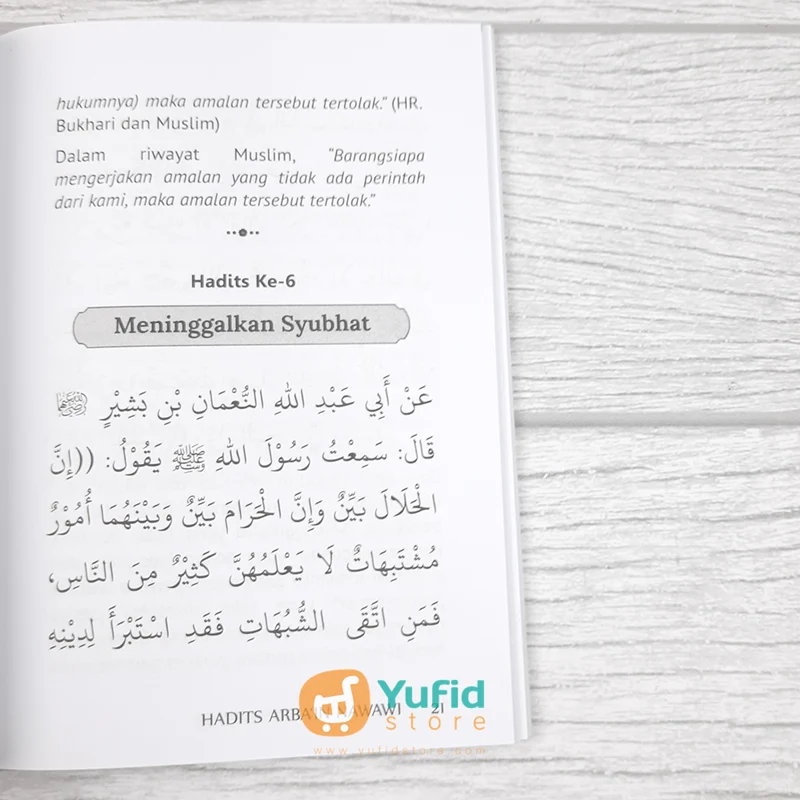 hukumnya) maka amalan tersebut tertolak.” (HR.
Bukhari dan Muslim)
Dalam riwayat Muslim, “Barangsiapa
mengerjakan amalan yang tidak ada perintah
dari kami, maka amalan tersebut tertolak.”
Hadits Ke-6
Meninggalkan Syubhat
عَنْ أَبِي عَبْدِ اللهِ النُّعْمَانِ بْنِ بَشِيْرٍ رضي الله عنهما
قَالَ: سَمِعْتُ رَسُوْلَ اللهِ ﷺ يَقُوْلُ: ((إِنَّ
الْحَلَالَ بَيِّنٌ وَإِنَّ الْحَرَامَ بَيِّنٌ وَبَيْنَهُمَا أُمُوْرٌ
مُشْتَبِهَاتٌ لَا يَعْلَمُهُنَّ كَثِيْرٌ مِنَ النَّاسِ،
فَمَنِ اتَّقَى الشُّبُهَاتِ فَقَدِ اسْتَبْرَأَ لِدِيْنِهِ
HADITS ARBA'IN NAWAWI 21
Yufid
store
www.yufidstore.com